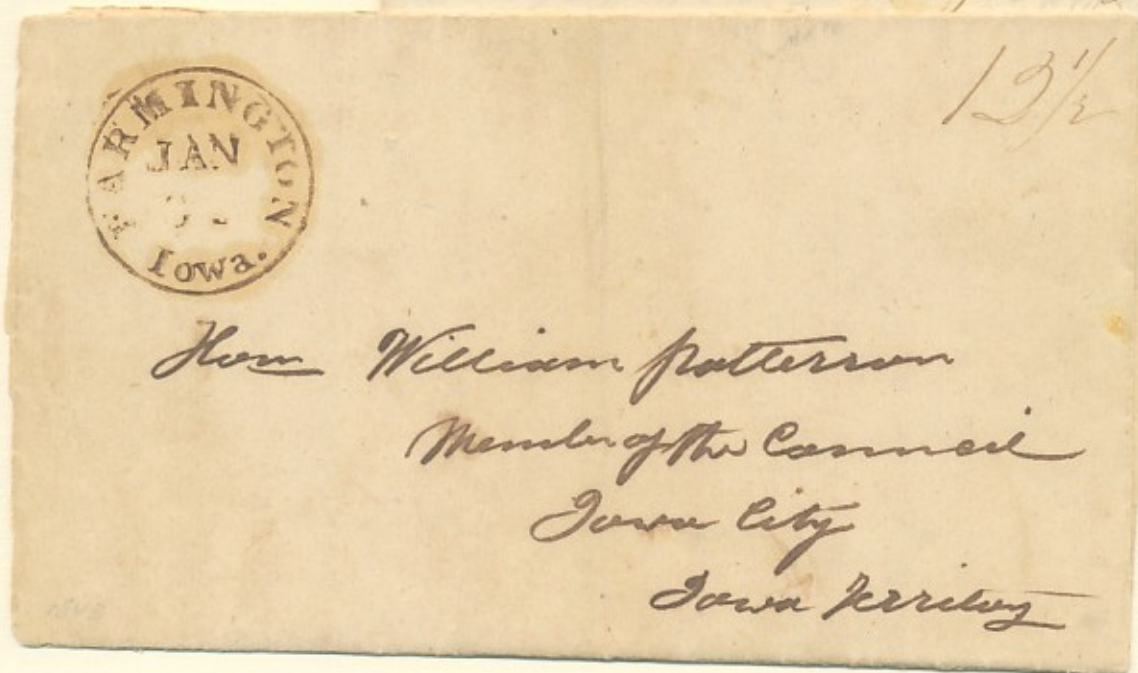 FARMINGTON
JAN
Iowa.
12½
Hon William Patterson
Member of the Council
Iowa City
Iowa Territory